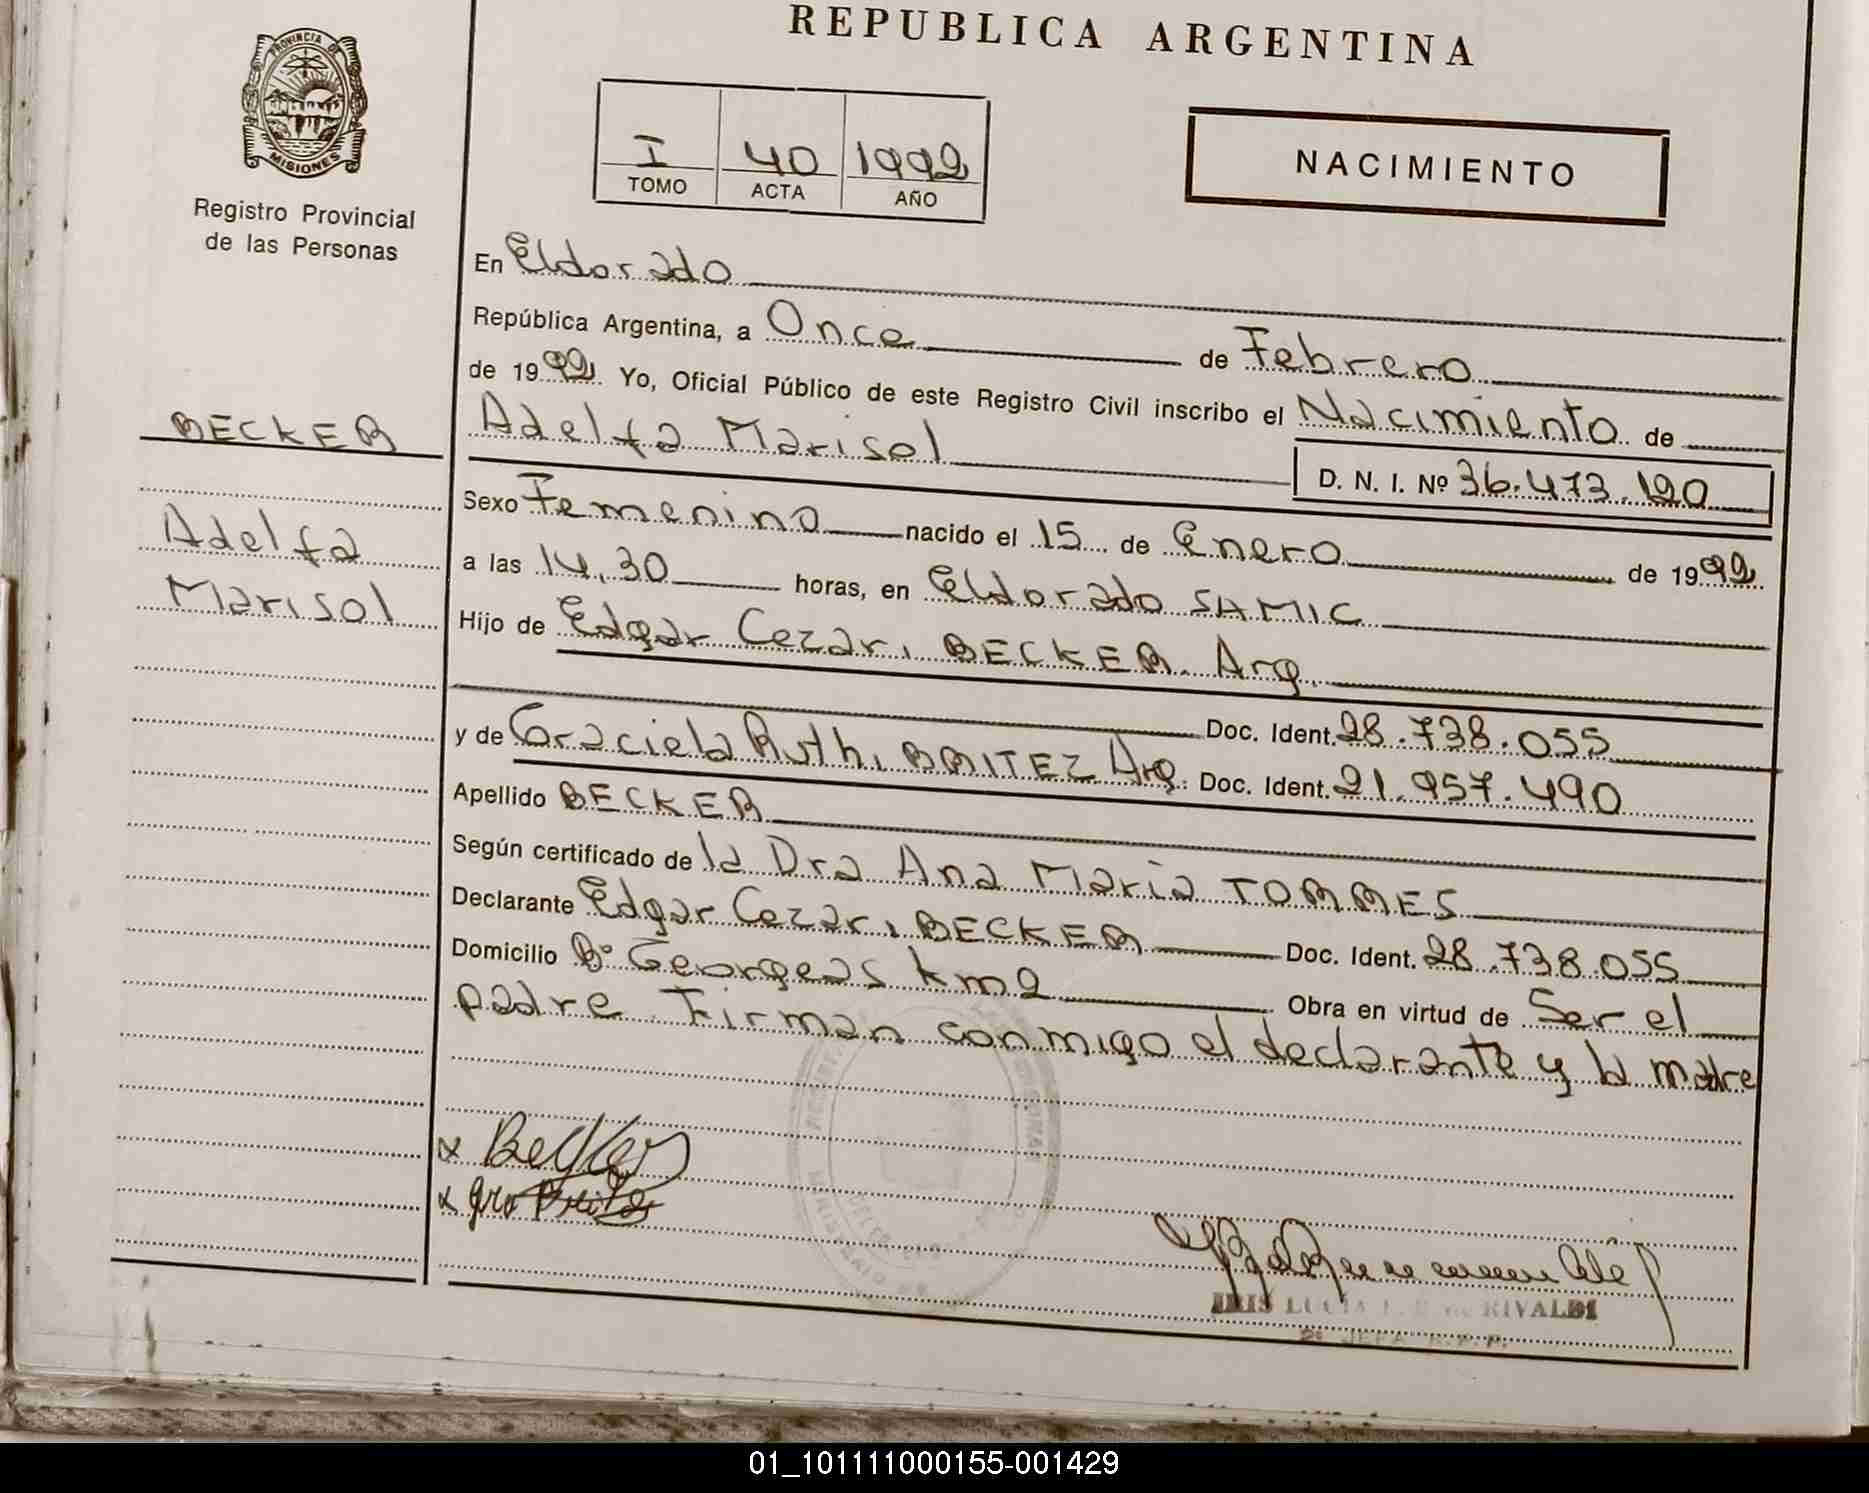 REPUBLICA ARGENTINA
PROVINCIA DE
MISIONES
Registro Provincial
de las Personas
I 40 1992
TOMO ACTA AÑO
NACIMIENTO
En Eldorado
República Argentina, a Once de Febrero
de 1992 Yo, Oficial Público de este Registro Civil inscribo el Nacimiento de
Adelfa Marisol
D. N. I. Nº 36.473.120
BECKER
Adelfa
Marisol
Sexo Femenino nacido el 15 de Enero de 1992
a las 14,30 horas, en Eldorado SAMIC
Hijo de Edgar Cezar, BECKER. Arg.
Doc. Ident. 28.738.055
y de Graciela Ruth, BRITEZ Arg. Doc. Ident. 21.957.490
Apellido BECKER
Según certificado de la Dra Ana Maria TOMMES
Declarante Edgar Cezar, BECKER Doc. Ident. 28.738.055
Domicilio Bº Georgeas km 2 Obra en virtud de Ser el
padre. Firman conmigo el declarante y la madre
x Becker
x
IRIS LUCIA DE RIVALDI
2º JEFA R.P.P.
01_101111000155-001429